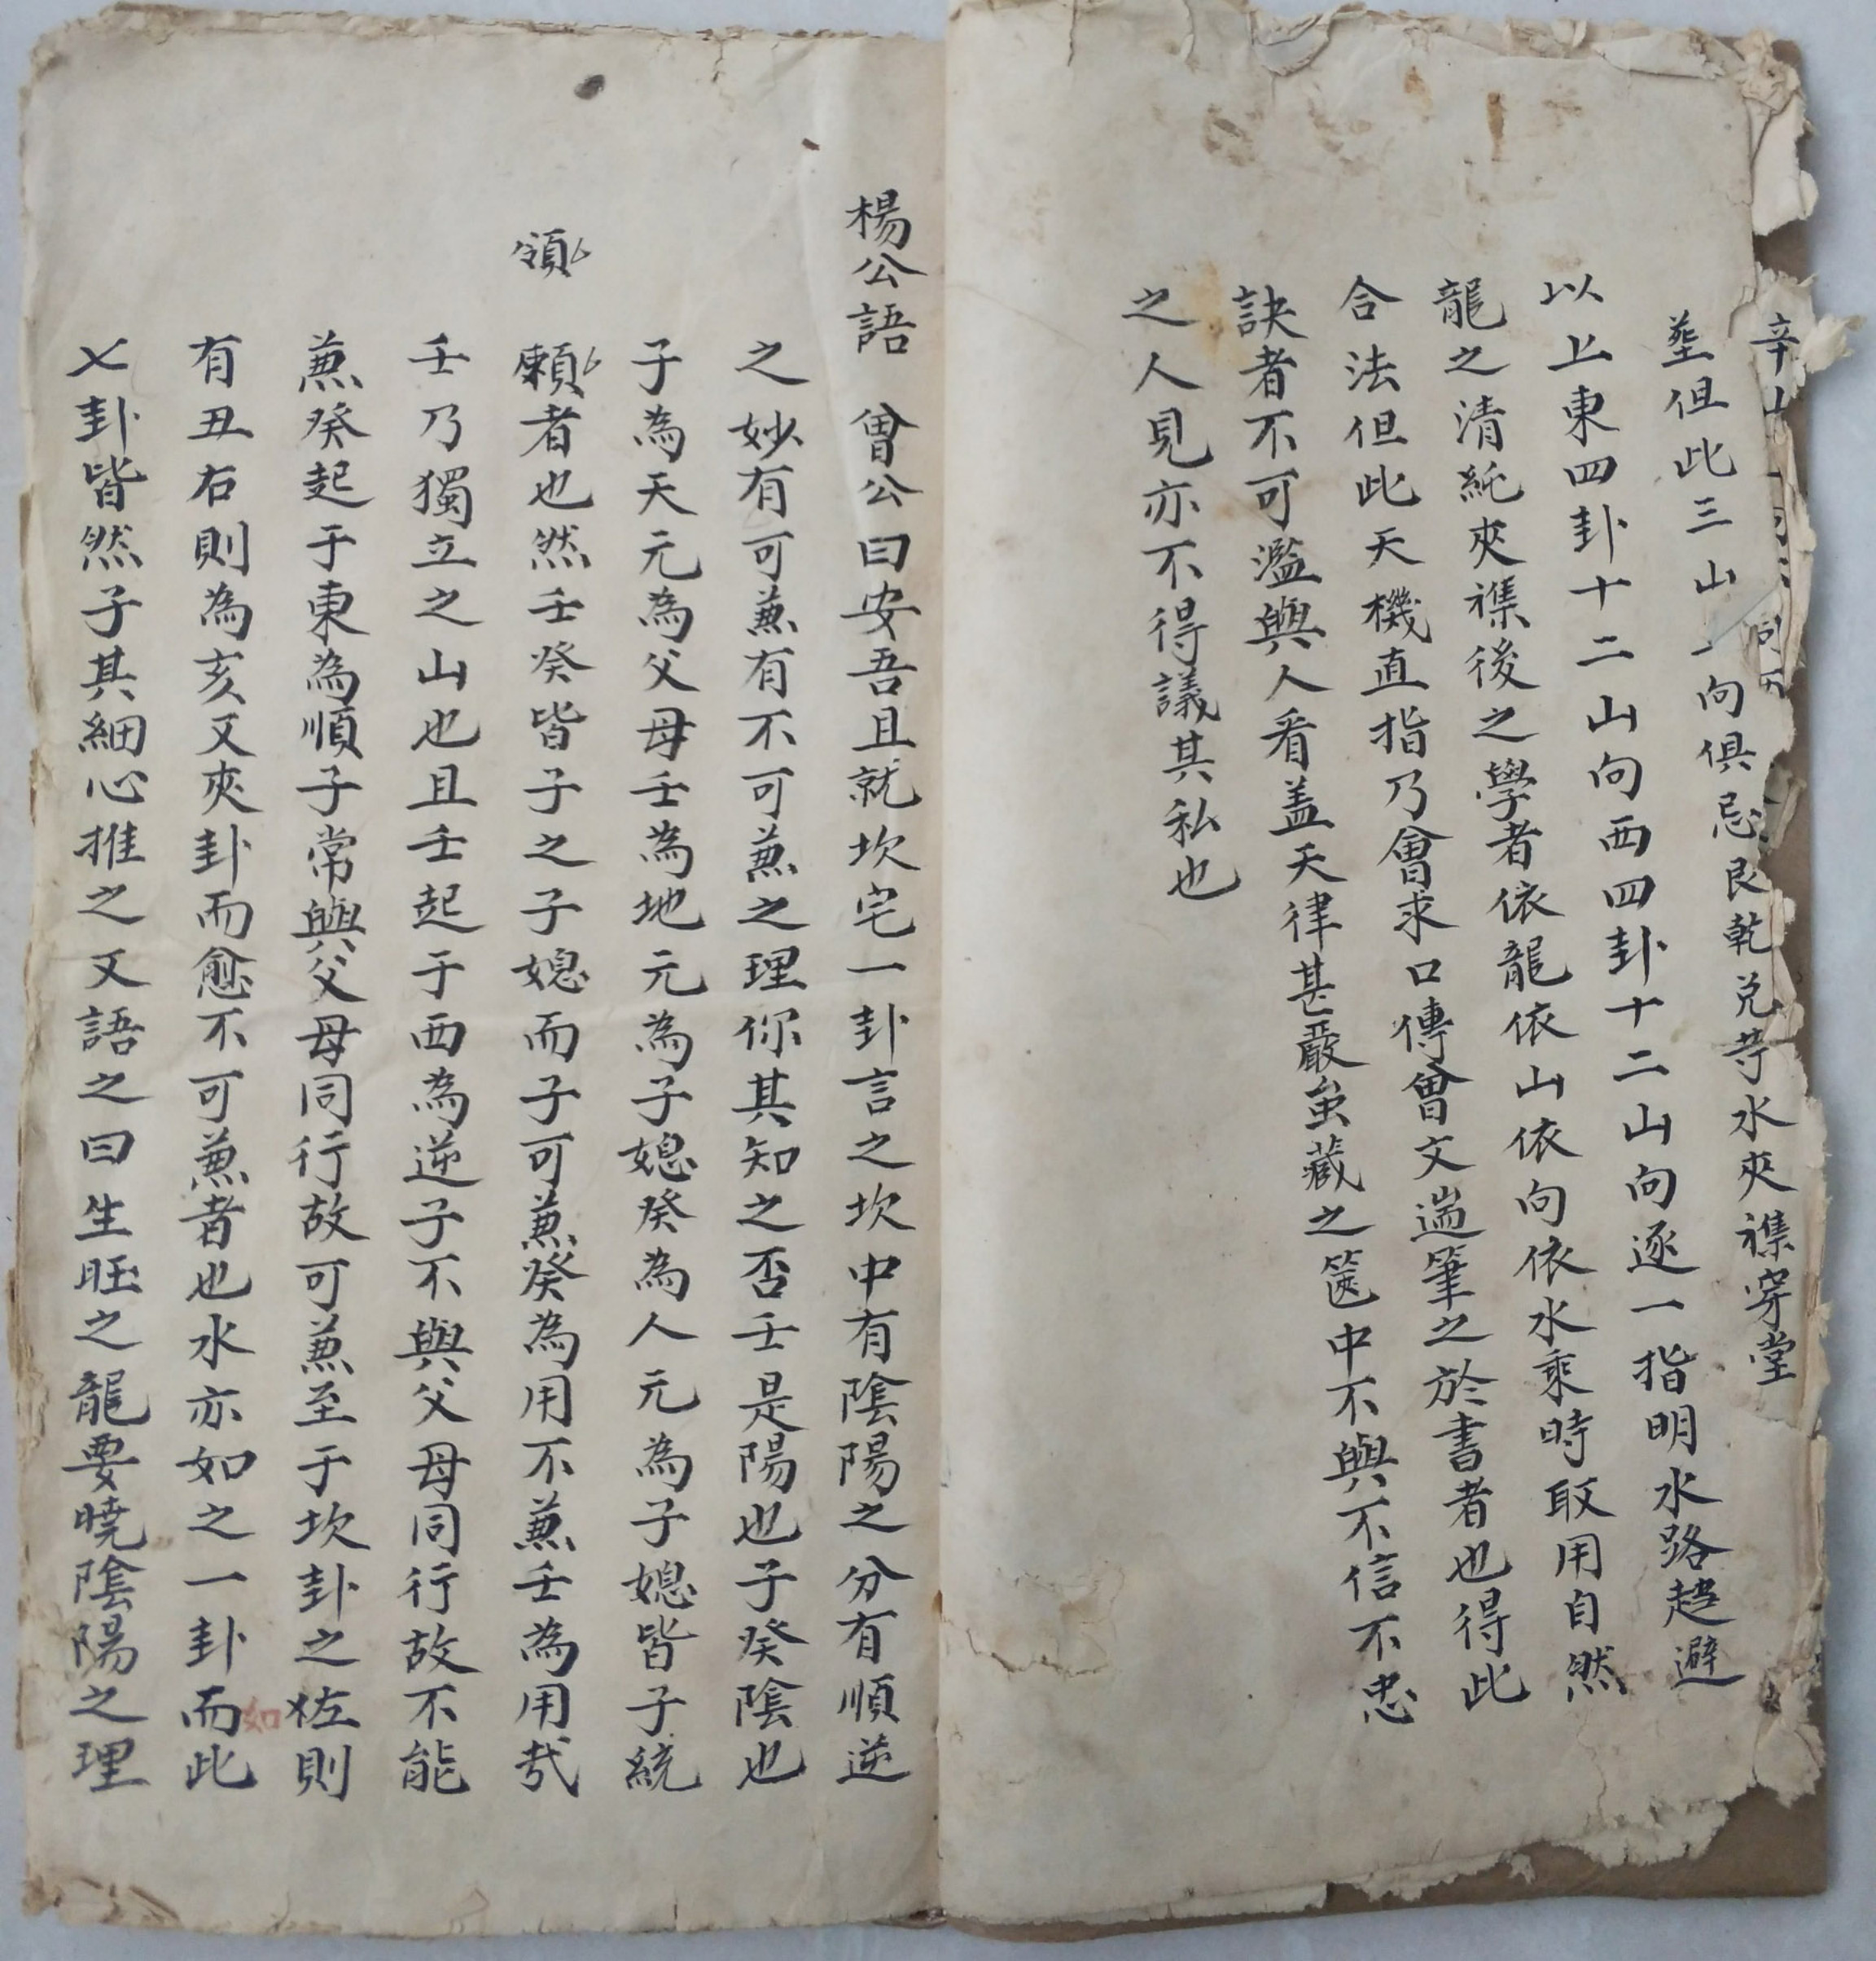 辛山
塋但此三山向俱忌艮乾兑等水夾襍穿堂
以上東四卦十二山向西四卦十二山向逐一指明水路趋避
龍之清純夾襍後之學者依龍依山依向依水乘時取用自然
合法但此天機直指乃會求口傳曾文辿筆之於書者也得此
訣者不可濫與人看盖天律甚嚴虽藏之篋中不與不信不忠
之人見亦不得議其私也
楊公語 曾公曰安吾且就坎宅一卦言之坎中有陰陽之分有順逆
之妙有可兼有不可兼之理你其知之否壬是陽也子癸陰也
子為天元為父母壬為地元為子媳癸為人元為子媳皆子統
領
頼者也然壬癸皆子之子媳而子可兼癸為用不兼壬為用哉
壬乃獨立之山也且壬起于西為逆子不與父母同行故不能
兼癸起于東為順子常與父母同行故可兼至于坎卦之左則
有丑右則為亥又夾卦而愈不可兼者也水亦如之一卦而此
如
卦皆然子其細心推之又語之曰生旺之龍要曉陰陽之理